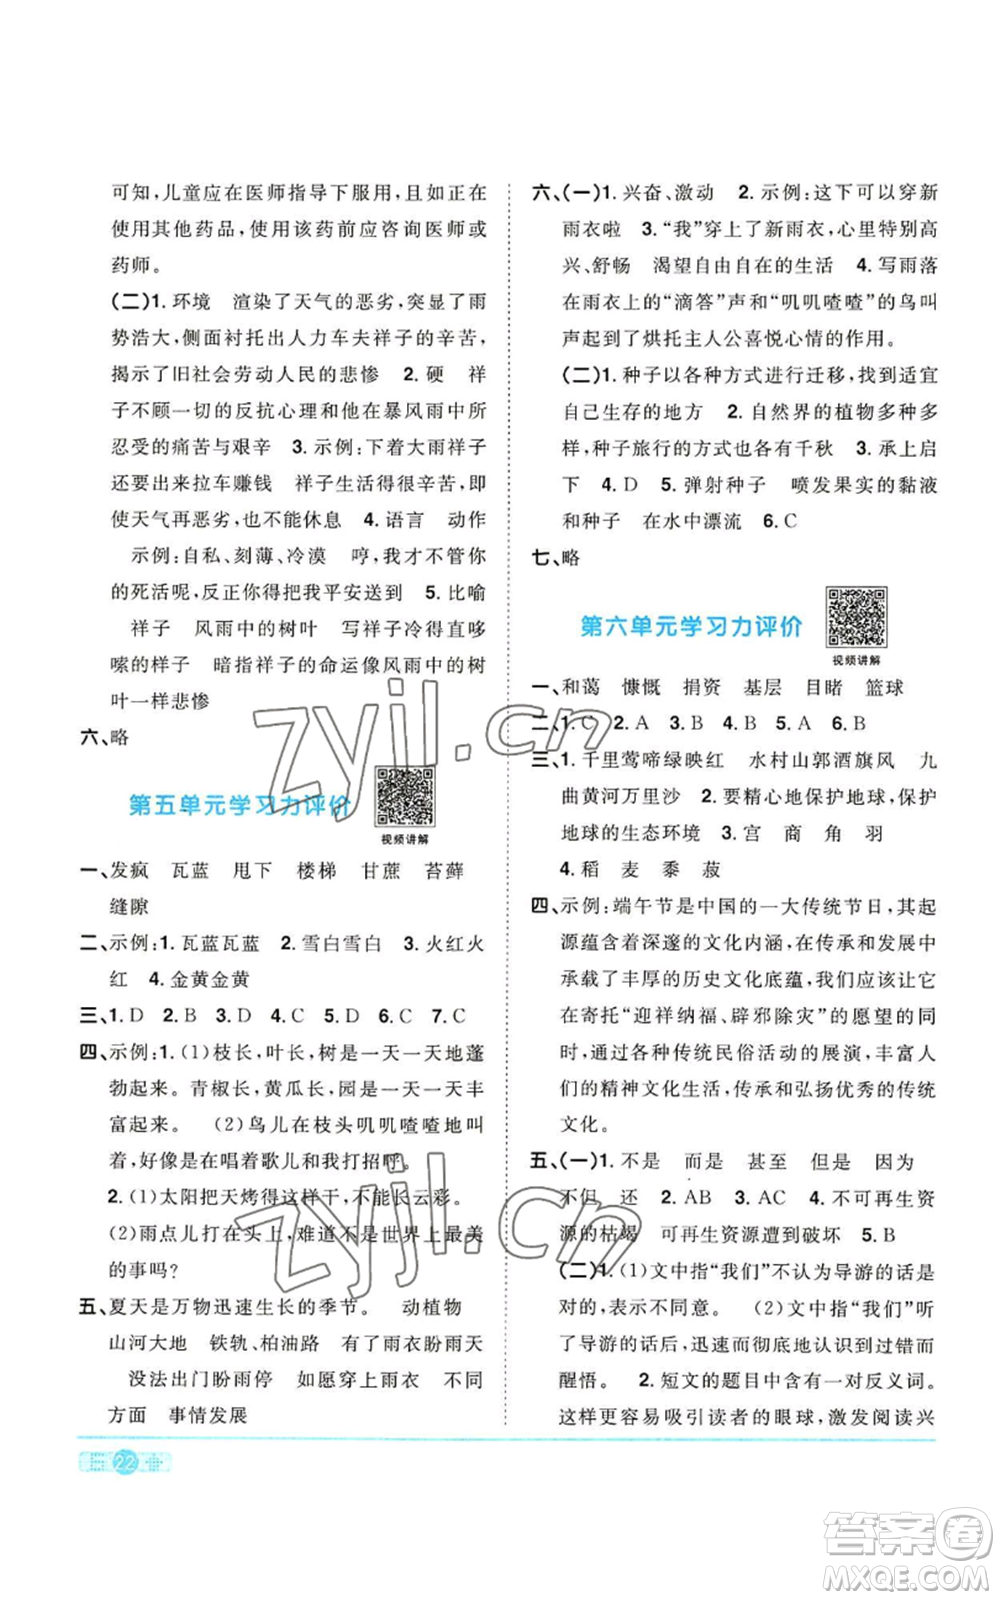 可知,儿童应在医师指导下服用,且如正在
使用其他药品,使用该药前应咨询医师或
药师。
(二)1.环境 渲染了天气的恶劣,突显了雨
势浩大,侧面衬托出人力车夫祥子的辛苦,
揭示了旧社会劳动人民的悲惨 2.硬 祥
子不顾一切的反抗心理和他在暴风雨中所
忍受的痛苦与艰辛 3.示例:下着大雨祥子
还要出来拉车赚钱 祥子生活得很辛苦,即
使天气再恶劣,也不能休息 4.语言 动作
示例:自私、刻薄、冷漠 哼,我才不管你
的死活呢,反正你得把我平安送到 5.比喻
祥子 风雨中的树叶 写祥子冷得直哆
嗦的样子 暗指祥子的命运像风雨中的树
叶一样悲惨
六、略
第五单元学习力评价
视频讲解
一、发疯 瓦蓝 甩下 楼梯 甘蔗 苔藓
缝隙
二、示例:1.瓦蓝瓦蓝 2.雪白雪白 3.火红火
红 4.金黄金黄
三、1.D 2.B 3.D 4.C 5.D 6.C 7.C
四、示例:1.(1)枝长,叶长,树是一天一天地蓬
勃起来。青椒长,黄瓜长,园是一天一天丰
富起来。 (2)鸟儿在枝头叽叽喳喳地叫
着,好像是在唱着歌儿和我打招呼。
2.(1)太阳把天烤得这样干,不能长云彩。
(2)雨点儿打在头上,难道不是世界上最美
的事吗?
五、夏天是万物迅速生长的季节。 动植物
山河大地 铁轨、柏油路 有了雨衣盼雨天
没法出门盼雨停 如愿穿上雨衣 不同
方面 事情发展
22
六、(一)1.兴奋、激动 2.示例:这下可以穿新
雨衣啦 3.“我”穿上了新雨衣,心里特别高
兴、舒畅 渴望自由自在的生活 4.写雨落
在雨衣上的“滴答”声和“叽叽喳喳”的鸟叫
声起到了烘托主人公喜悦心情的作用。
(二)1.种子以各种方式进行迁移,找到适宜
自己生存的地方 2.自然界的植物多种多
样,种子旅行的方式也各有千秋 3.承上启
下 4.D 5.弹射种子 喷发果实的黏液
和种子 在水中漂流 6.C
七、略
第六单元学习力评价
视频讲解
一、和蔼 慷慨 捐资 基层 目睹 篮球
二、1.C 2.A 3.B 4.B 5.A 6.B
三、1.千里莺啼绿映红 水村山郭酒旗风 九
曲黄河万里沙 2.要精心地保护地球,保护
地球的生态环境 3.宫 商 角 羽
4.稻 麦 黍 菽
四、示例:端午节是中国的一大传统节日,其起
源蕴含着深邃的文化内涵,在传承和发展中
承载了丰厚的历史文化底蕴,我们应该让它
在寄托“迎祥纳福、辟邪除灾”的愿望的同
时,通过各种传统民俗活动的展演,丰富人
们的精神文化生活,传承和弘扬优秀的传统
文化。
五、(一)1.不是 而是 甚至 但是 因为
不但 还 2.AB 3.AC 4.不可再生资
源的枯竭 可再生资源遭到破坏 5.B
(二)1.(1)文中指“我们”不认为导游的话是
对的,表示不同意。 (2)文中指“我们”听
了导游的话后,迅速而彻底地认识到过错而
醒悟。 2.短文的题目中含有一对反义词。
这样更容易吸引读者的眼球,激发阅读兴
zyjl.cn
zyjl.cn
答案圈
MXQE.COM